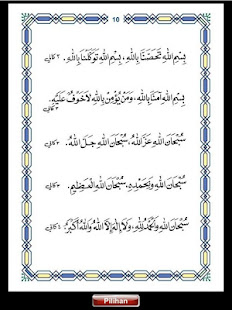 16
بِسْمِ اللهِ تَحَصَّنَّا بِاللهِ، بِسْمِ اللهِ تَوَكَّلْنَا بِاللهِ. ٢ كالي
بِسْمِ اللهِ اٰمَنَّا بِاللهِ، وَمَنْ يُؤْمِنْ بِاللهِ لَا خَوْفٌ عَلَيْهِ. ٢ كالي
سُبْحَانَ اللهِ عَزَّ اللهُ، سُبْحَانَ اللهِ جَلَّ اللهُ. ٢ كالي
سُبْحَانَ اللهِ وَبِحَمْدِهِ، سُبْحَانَ اللهِ الْعَظِيْمِ. ٢ كالي
سُبْحَانَ اللهِ وَالْحَمْدُ لِلّٰهِ، وَلَا إِلٰهَ إِلَّا اللهُ وَاللهُ أَكْبَرُ. كالي
Pilihan